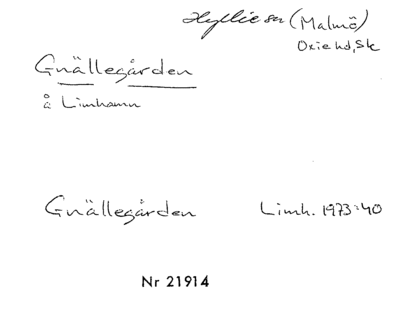 Hyllie sn (Malmö)
Oxie hd, Sk
Gnällegården
å Limhamn
Gnällegården Limh. 1973:40
Nr 21914